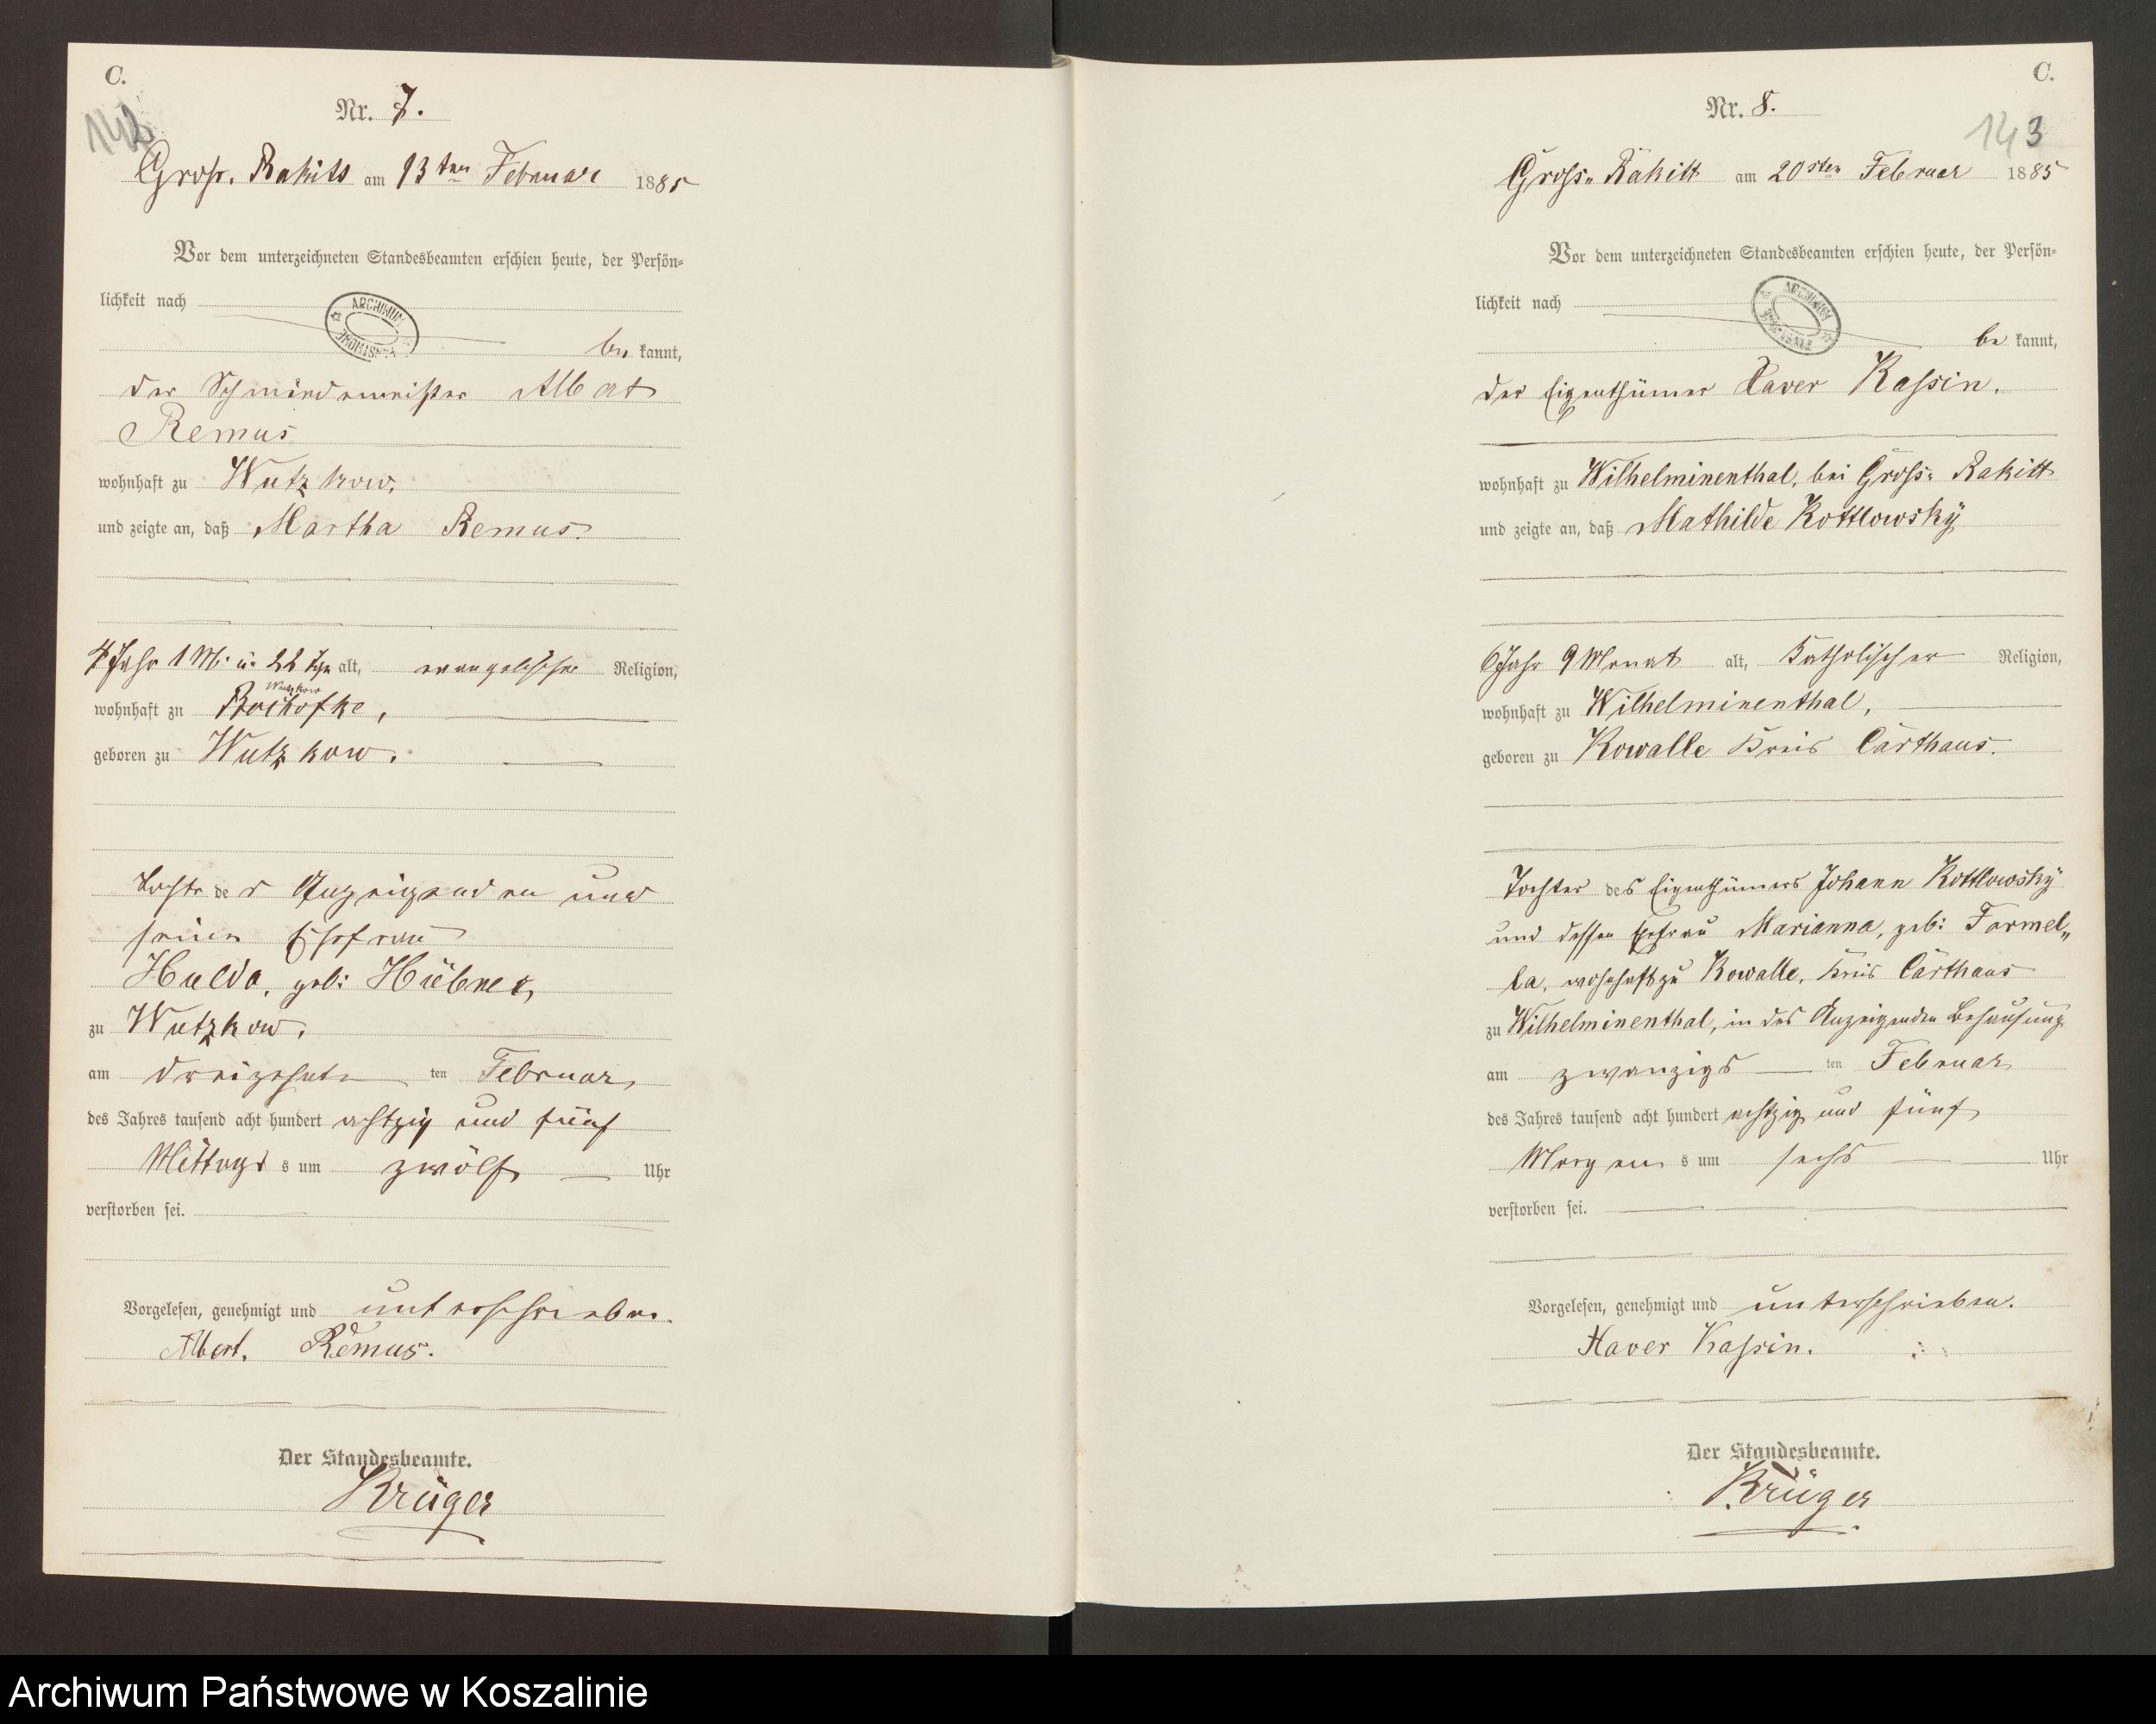 C.
142
Nr. 7.
Gross. Rakitt am 13ten Februar 1885
Vor dem unterzeichneten Standesbeamten erschien heute, der Persön-
lichkeit nach
ARCHIWUM
be kannt,
der Schmiedemeister Albert
Remus
wohnhaft zu Wutzkow,
und zeigte an, daß Martha Remus
4 Jahr 1 M. u. 22 Tge alt, evangelischer Religion,
Wutzkow
wohnhaft zu
geboren zu Wutzkow.
Tochter de s Anzeigenden und
seiner Ehefrau
Hulda, geb: Hübner,
zu Wutzkow,
am dreizehnten ten Februar,
des Jahres tausend acht hundert achtzig und fünf
Mittags s um zwölf Uhr
verstorben sei.
Vorgelesen, genehmigt und unterschrieben.
Albert. Remus.
Der Standesbeamte.
Krüger
C.
143
Nr. 8.
Gross- Rakitt am 20sten Februar 1885
Vor dem unterzeichneten Standesbeamten erschien heute, der Persön-
lichkeit nach
ARCHIWUM
be kannt,
der Eigenthümer Xaver Kassin.
wohnhaft zu Wilhelminenthal, bei Gross- Rakitt
und zeigte an, daß Mathilde Kottlowsky
6 Jahr 9 Monat alt, Katholischer Religion,
wohnhaft zu Wilhelminenthal,
geboren zu Kowalle Kreis Carthaus.
Tochter des Eigenthümers Johann Kottlowsky
und dessen Ehefrau Marianna, geb: Formel„
la, wohnhaft zu Kowalle, Kreis Carthaus
zu Wilhelminenthal, in des Anzeigenden Behausung
am zwanzigs ten Februar
des Jahres tausend acht hundert achtzig und fünf
Morgen s um sechs Uhr
verstorben sei.
Vorgelesen, genehmigt und unterschrieben.
Xaver Kassin.
Der Standesbeamte.
Krüger
Archiwum Państwowe w Koszalinie